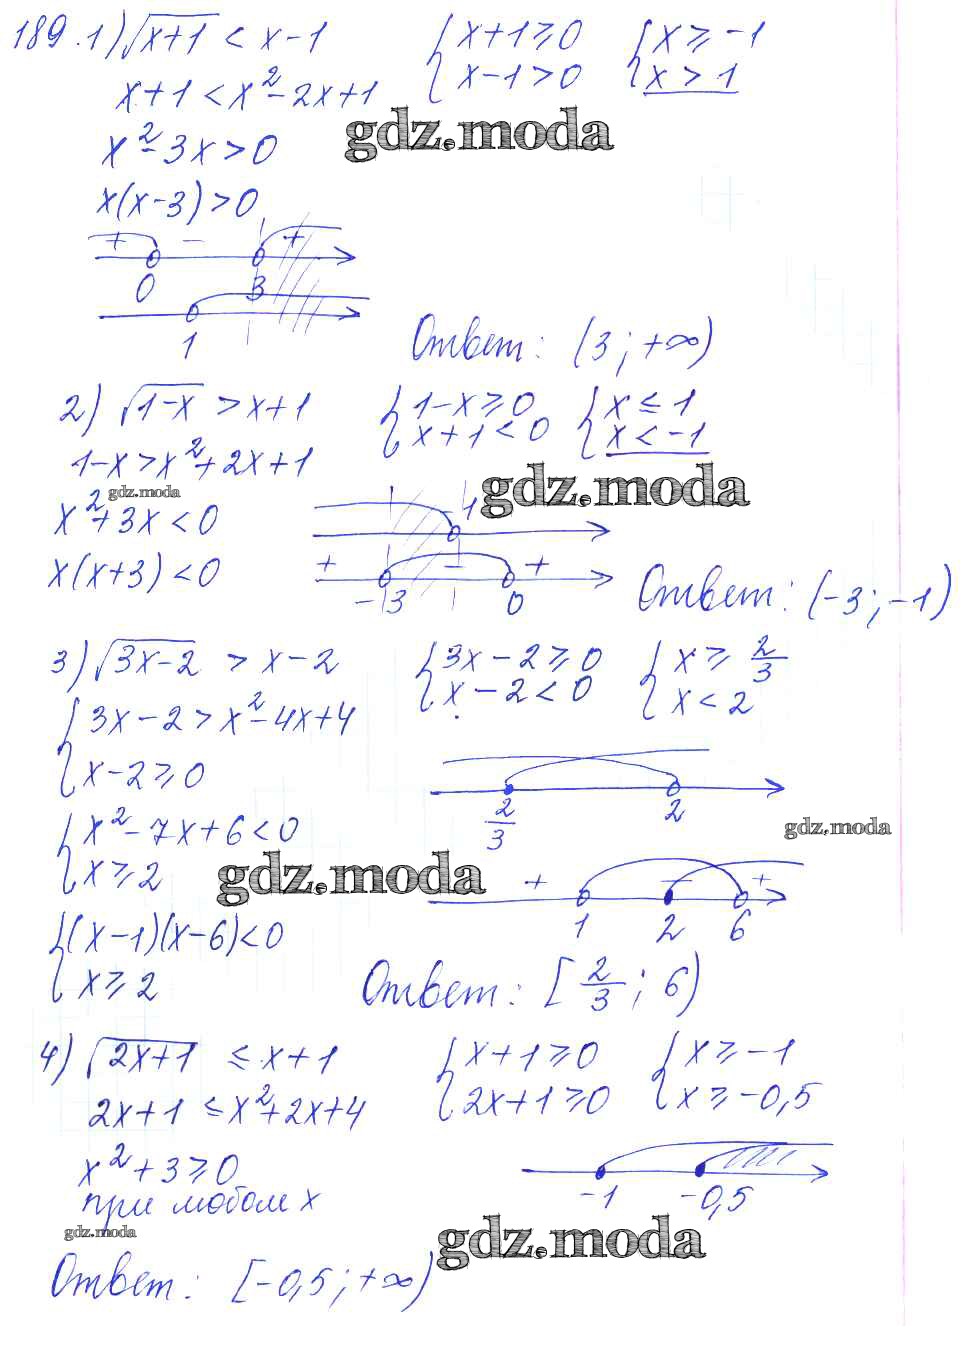 189. 1) √(x+1) < x-1 { x+1≥0 { x≥-1
x+1 < x²-2x+1 { x-1>0 { x>1
gdz.moda
x²-3x>0
x(x-3)>0
+ - +
0 3
1
Ответ: (3; +∞)
2) √(1-x) > x+1 { 1-x≥0 { x≤1
1-x > x²+2x+1 { x+1<0 { x<-1
gdz.moda gdz.moda
x²+3x<0 -1
x(x+3)<0 + - +
-3 0
Ответ: (-3; -1)
3) √(3x-2) > x-2 { 3x-2≥0 { x≥2/3
{ x-2<0 { x<2
{ 3x-2 > x²-4x+4
{ x-2≥0
2/3 2
{ x²-7x+6<0 gdz.moda
{ x≥2
gdz.moda
+ - +
1 2 6
{ (x-1)(x-6)<0
{ x≥2
Ответ: [2/3; 6)
4) √(2x+1) ≤ x+1 { x+1≥0 { x≥-1
2x+1 ≤ x²+2x+4 { 2x+1≥0 { x≥-0,5
x²+3≥0
при любом x -1 -0,5
gdz.moda gdz.moda
Ответ: [-0,5; +∞)